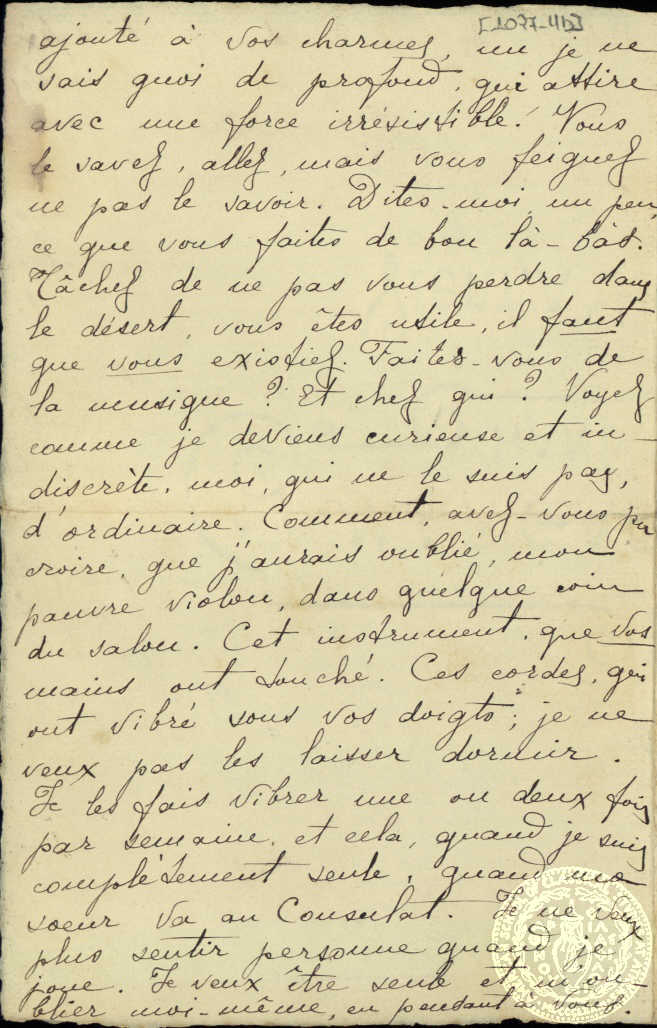 [1077-4b]
ajouté à vos charmes, un je ne
sais quoi de profond, qui attire
avec une force irrésistible! Vous
le savez, allez, mais vous feignez
ne pas le savoir. Dites-moi, un peu,
ce que vous faites de bon là-bàs.
Tâchez de ne pas vous perdre dans
le désert, vous êtes utile, il faut
que vous existiez. Faites-vous de
la musique? Et chez qui? Voyez
comme je deviens curieuse et in-
discrète, moi, qui ne le suis pas,
d'ordinaire. Comment, avez-vous pu
croire, que j'aurais oublié, mon
pauvre violon, dans quelque coin
du salon. Cet instrument, que vos
mains ont touché. Ces cordes, qui
ont vibré sous vos doigts; je ne
veux pas les laisser dormir.
Je les fais vibrer une ou deux fois
par semaine, et cela, quand je suis
complétement seule, quand ma
soeur va au Consulat. Je ne veux
plus sentir personne quand je
joue. Je veux être seule et m'ou-
blier moi-même, en pendant à vous.